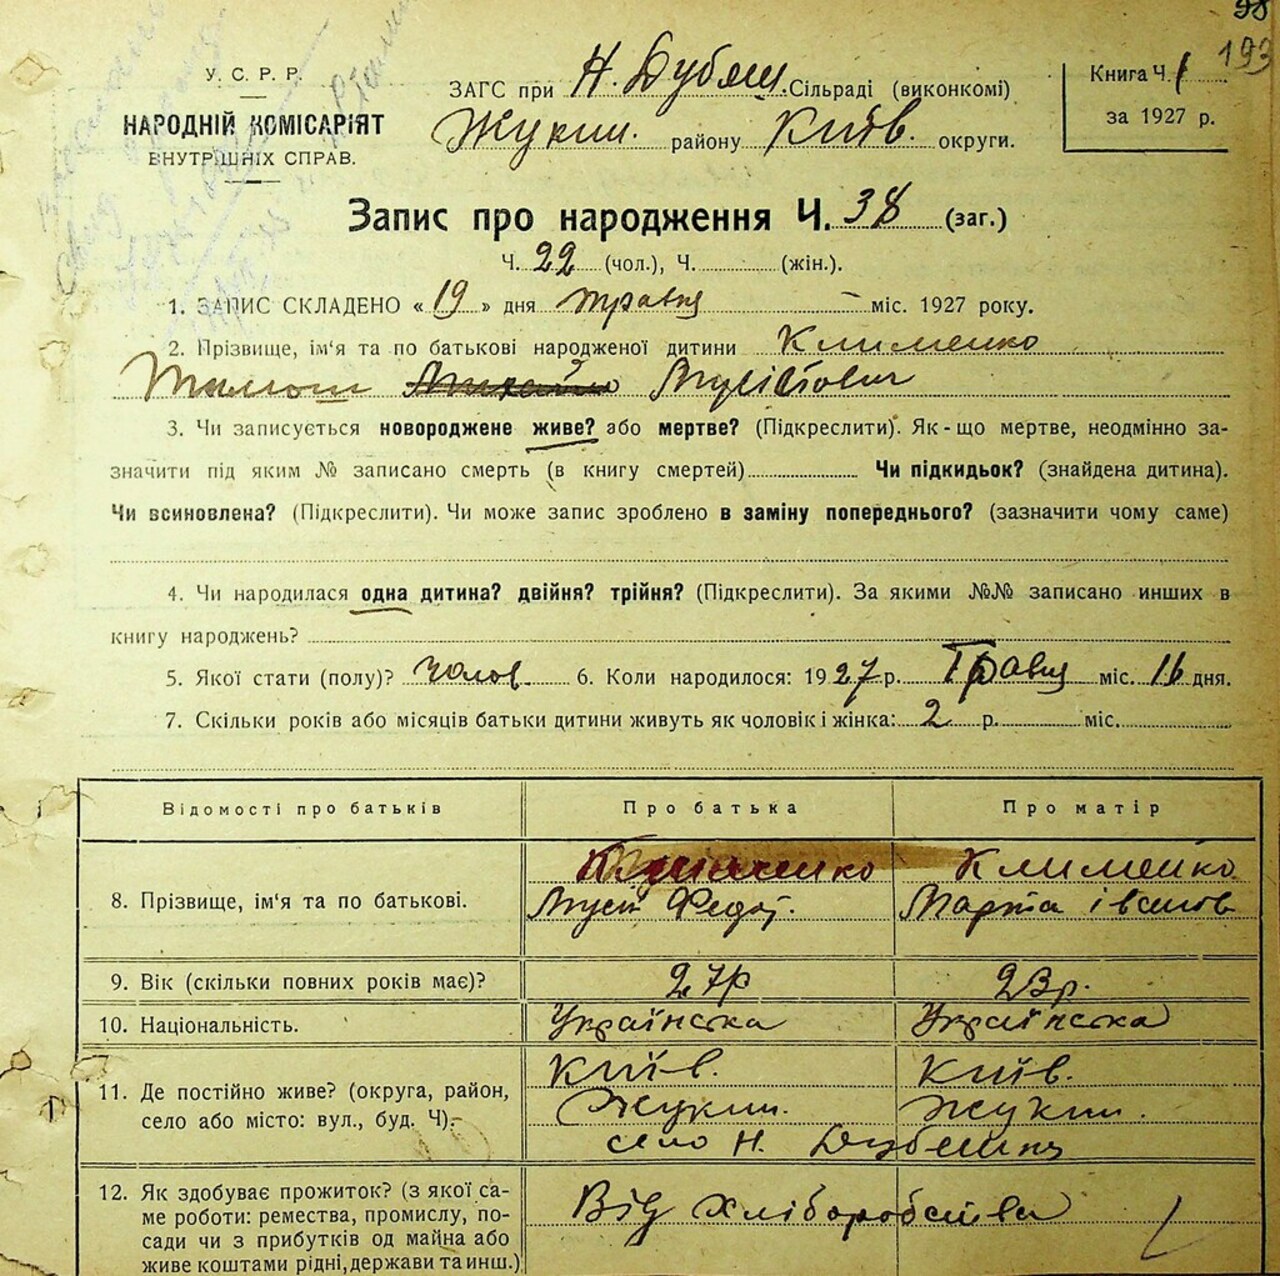 98
193
У. С. Р. Р.
НАРОДНІЙ КОМІСАРІЯТ
ВНУТРІШНІХ СПРАВ.
ЗАГС при Н. Дубеш. Сільраді (виконкомі)
Жукин. району Київ. округи.
Книга Ч. 1
за 1927 р.
Запис про народження Ч. 38 (заг.)
Ч. 22 (чол.), Ч. (жін.).
1. ЗАПИС СКЛАДЕНО « 19 » дня травня міс. 1927 року.
2. Прізвище, ім‘я та по батькові народженої дитини Клименко
Тимош Михайло
3. Чи записується новороджене живе? або мертве? (Підкреслити). Як-що мертве, неодмінно за-
значити під яким № записано смерть (в книгу смертей) Чи підкидьок? (знайдена дитина).
Чи всиновлена? (Підкреслити). Чи може запис зроблено в заміну попереднього? (зазначити чому саме)
4. Чи народилася одна дитина? двійня? трійня? (Підкреслити). За якими №№ записано инших в
книгу народжень?
5. Якої стати (полу)? чолов. 6. Коли народилося: 1927 р. Травня міс. 16 дня.
7. Скільки років або місяців батьки дитини живуть як чоловік і жінка: 2 р. міс.
Відомості про батьків Про батька Про матір
8. Прізвище, ім‘я та по батькові. Клименко Клименко
Федот. Марта Іванов
9. Вік (скільки повних років має)? 27р 23р.
10. Національність. Українська Українська
11. Де постійно живе? (округа, район,
село або місто: вул., буд. Ч).
Київ. Київ.
Жукин. Жукин.
село Н. Дубешня
12. Як здобуває прожиток? (з якої са-
ме роботи: ремества, промислу, по-
сади чи з прибутків од майна або
живе коштами рідні, держави та инш.)
Від хліборобства